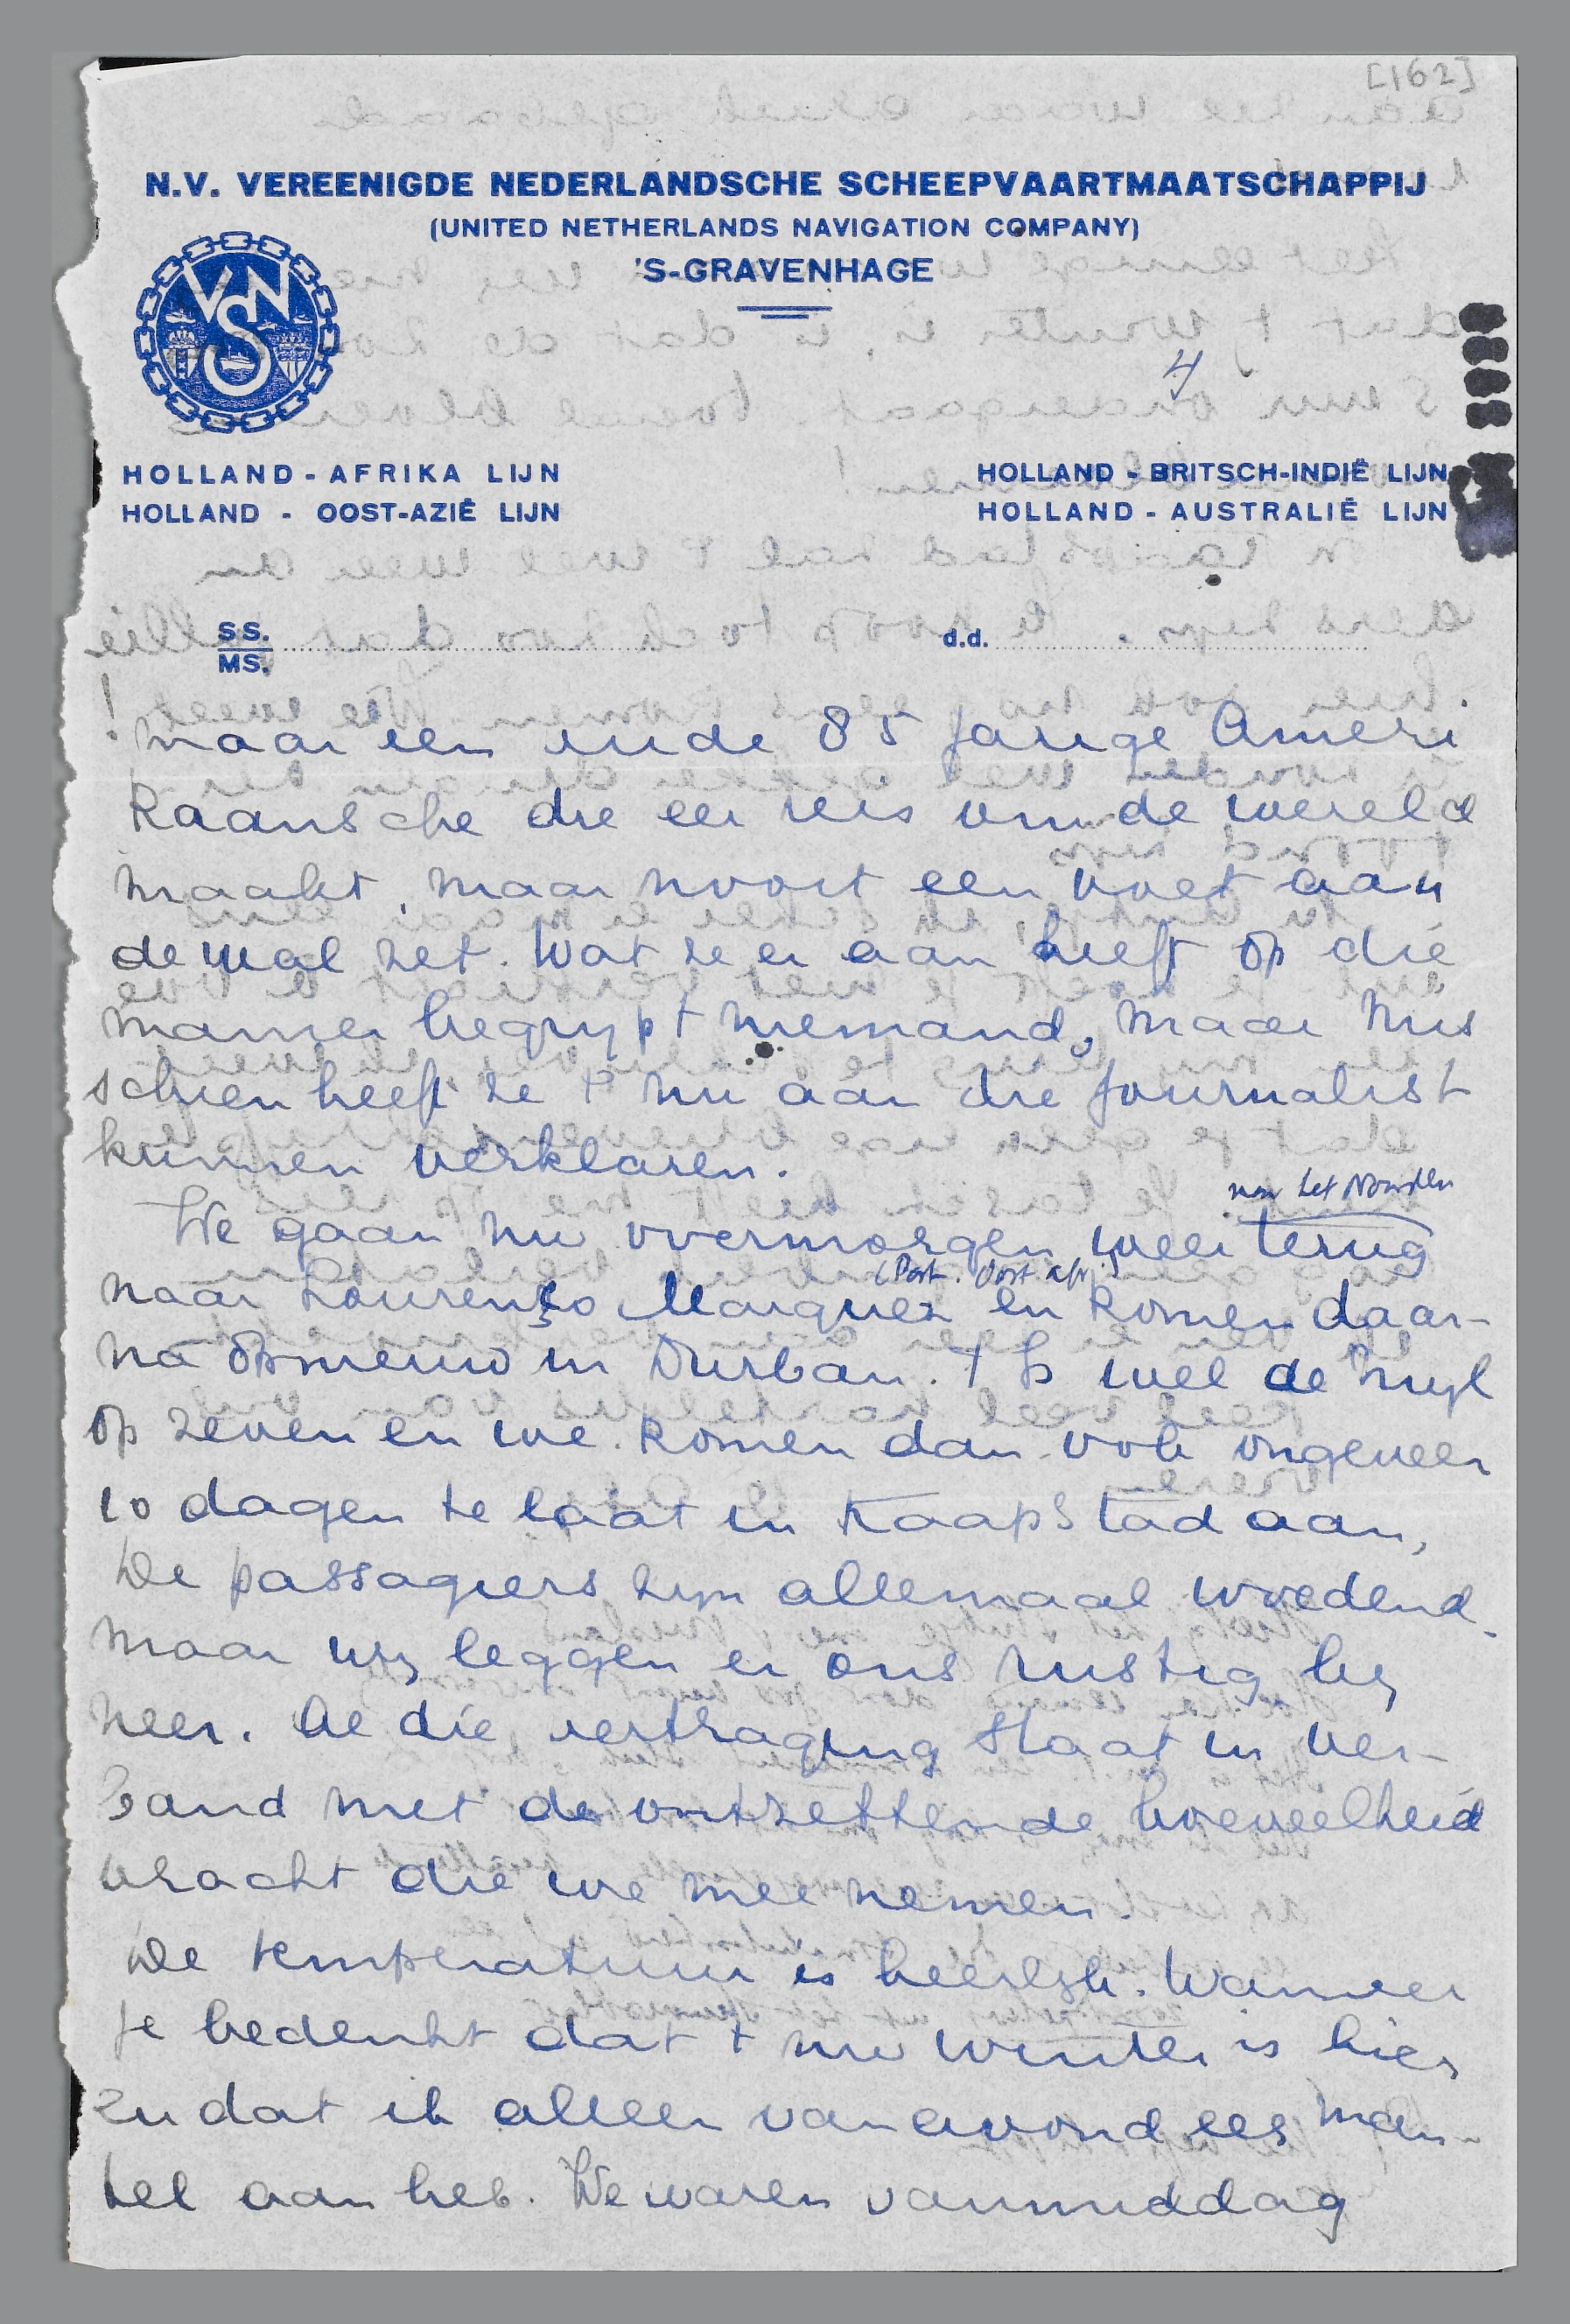 [162]
N.V. VEREENIGDE NEDERLANDSCHE SCHEEPVAARTMAATSCHAPPIJ
(UNITED NETHERLANDS NAVIGATION COMPANY)
'S-GRAVENHAGE
VNS
4
HOLLAND - AFRIKA LIJN
HOLLAND - OOST-AZIË LIJN
HOLLAND - BRITSCH-INDIË LIJN
HOLLAND - AUSTRALIË LIJN
SS.
MS.
d.d.
maar een oude 85 jarige Ameri
kaansche die een reis om de wereld
maakt, maar nooit een voet aan
de wal zet. Wat ze er aan heeft op die
manier begrijpt niemand, maar mis
schien heeft ze 't nu aan die journalist
kunnen verklaren.
van het Noorden
We gaan nu overmorgen weer terug
(Port. Oost Afr.)
naar Lourenço Marquez en komen daar-
na opnieuw in Durban. 't Is wel de mijl
op zeven en we komen dan ook ongeveer
10 dagen te laat in Kaapstad aan,
De passagiers zijn allemaal woedend.
maar wij leggen er ons rustig bij
neer. Al die vertraging staat in ver-
band met de ontzettende hoeveelheid
vracht die we mee nemen.
De temperatuur is heerlijk. Wanneer
je bedenkt dat 't nu winter is hier
en dat ik alleen van avond een man-
tel aan heb. We waren vanmiddag